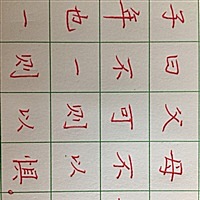 子曰父母
年不可不
也一则以
一则以惧。